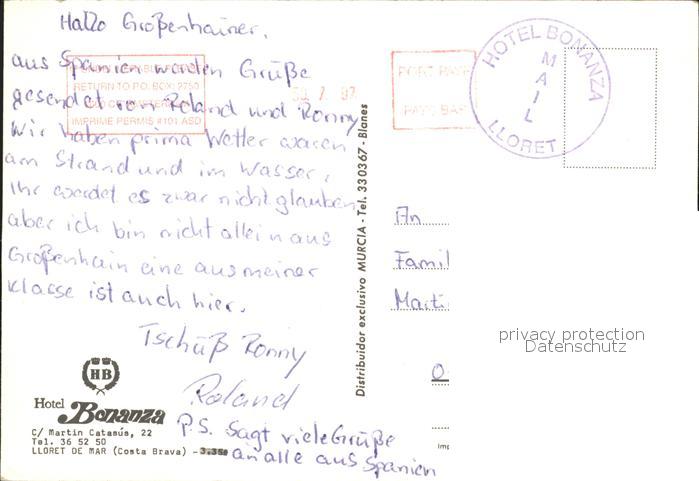 Hallo Großenhainer,
aus Spanien werden Grüße
gesendet von Roland und Ronny
Wir haben prima Wetter waren
am Strand und im Wasser,
Ihr werdet es zwar nicht glauben
aber ich bin nicht allein aus
Großenhain eine aus meiner
Klasse ist auch hier.
Tschüß Ronny
Roland
P.S. Sagt viele Grüße
an alle aus Spanien
RETURN TO P.O. BOX: 2750
IMPRIME PERMIS #101 ASD
PORT PAYE
PAYS-BAS
HOTEL BONANZA
MAIL
LLORET
Distribuidor exclusivo MURCIA - Tel. 330367 - Blanes
An
Famil
Marti
O
privacy protection
Datenschutz
HB
Hotel Bonanza
C/ Martin Catasús, 22
Tel. 36 52 50
LLORET DE MAR (Costa Brava) -